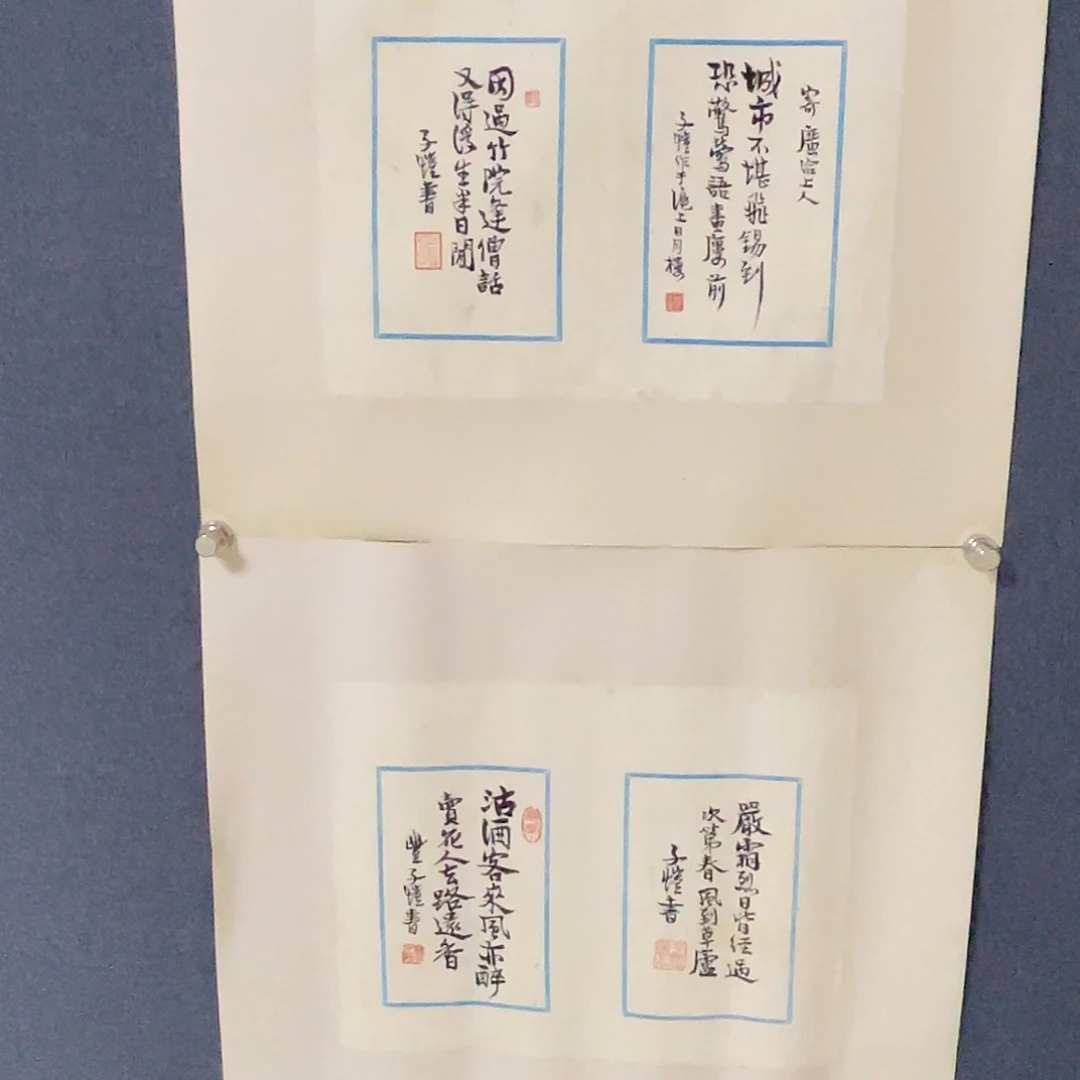 寄廣洽上人
城市不堪飛錫到
恐驚鶯語畫樓前
子愷作于滬上日月樓
因過竹院逢僧話
又得浮生半日閒
子愷書
嚴霜烈日皆經過
次第春風到草廬
子愷書
沽酒客來風亦醉
賣花人去路還香
豐子愷書